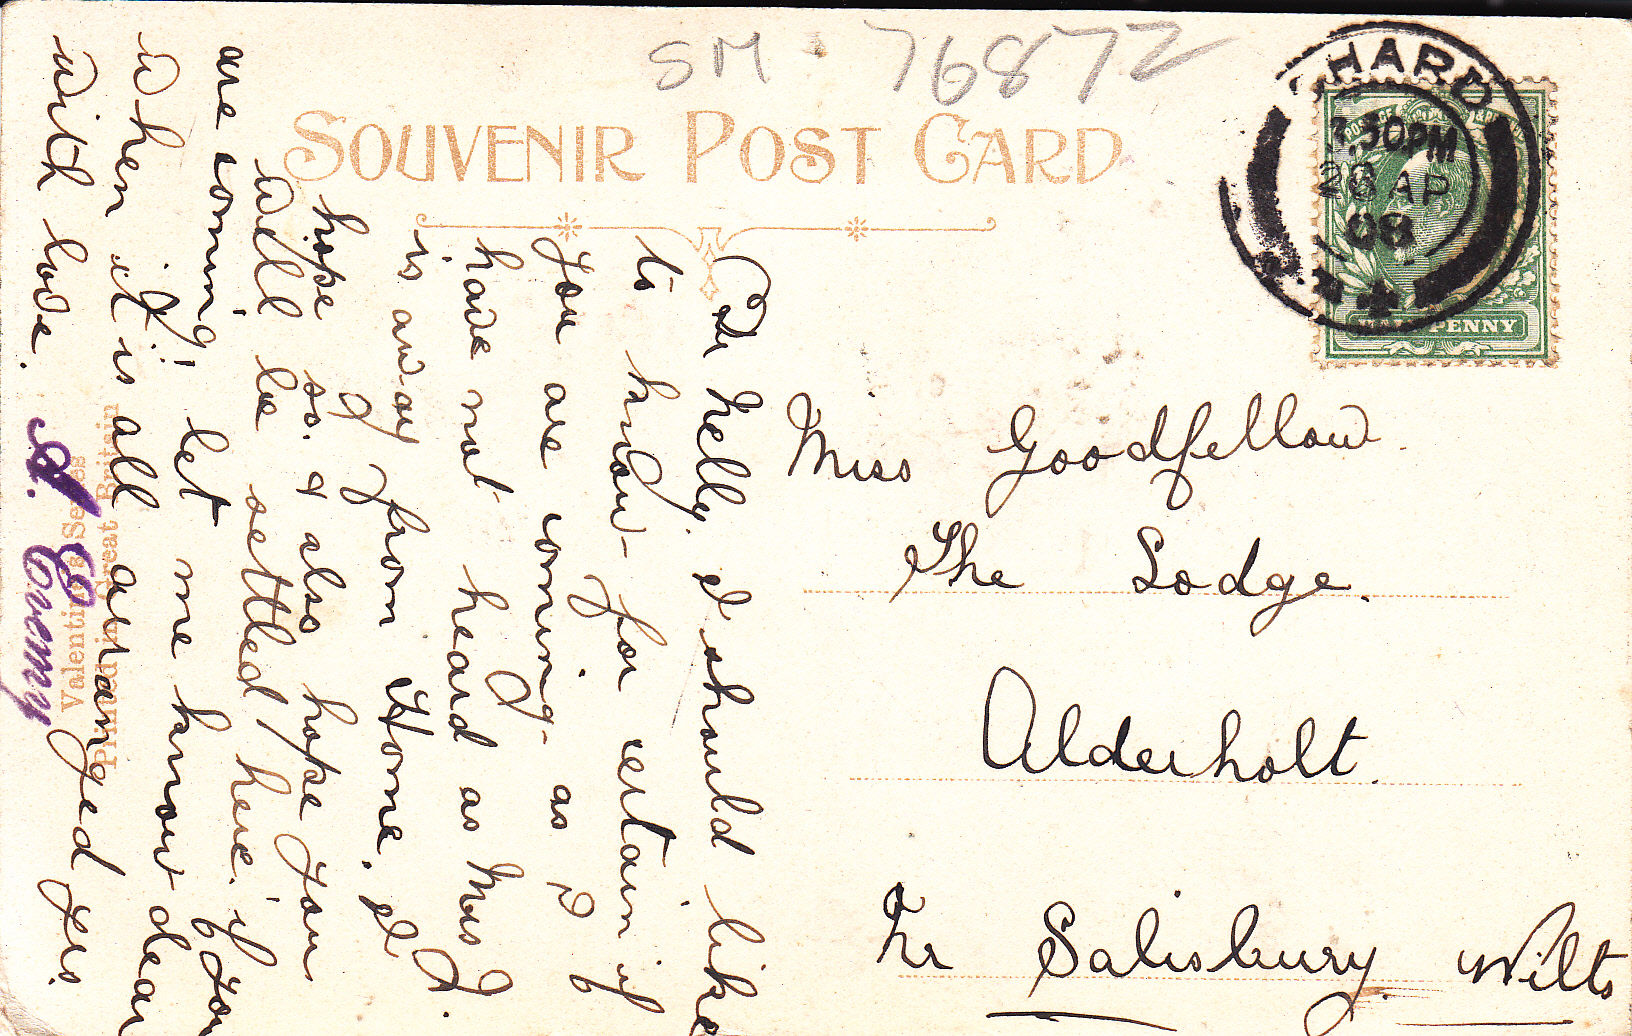 SM. 76872
SOUVENIR POST CARD
CHARD
3.30PM
28 AP
08
POSTAGE
HALF PENNY
Miss Goodfellow
The Lodge.
Alderholt.
Nr Salisbury Wilts
Dr Nelly. I should like
to know for certain if
you are coming- as I
have not heard as Mrs J.
is away from Home. I
hope so. I also hope you
will be settled here. if you
are coming! let me know dear
when it is all arranged yrs.
with love.
Valentine's Series
Printed in Great Britain